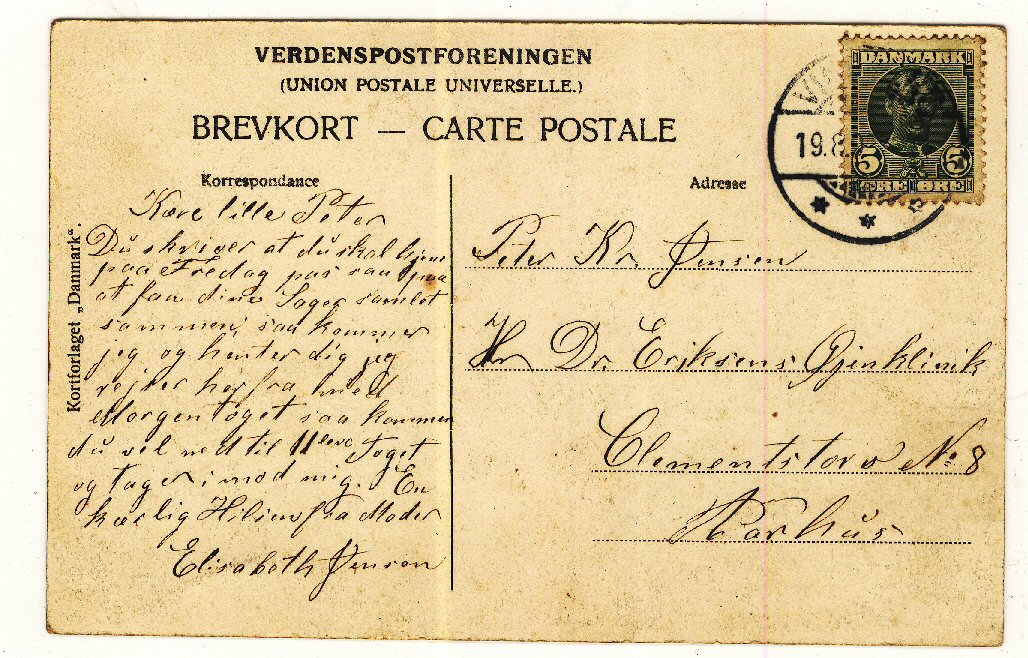 VERDENSPOSTFORENINGEN
(UNION POSTALE UNIVERSELLE.)
BREVKORT — CARTE POSTALE
Korrespondance
Adresse
DANMARK
5 5
ØRE ØRE
19.8.
Kortforlaget „Danmark“.
Kære lille Peter
Du skriver at du skal hjem
paa Fredag pas saa paa
at faa dine Sager samlet
sammen, saa kommer
jeg og henter dig jeg
rejser herfra med
Morgentoget saa kommer
du vel ned til 11 Toget
og tager imod mig. En
kærlig Hilsen fra Moder
Elisabeth Jensen
Peter Kr. Jensen
Hr Dr. Eriksens Øjenklinik
Clementstorv No 8
Aarhus